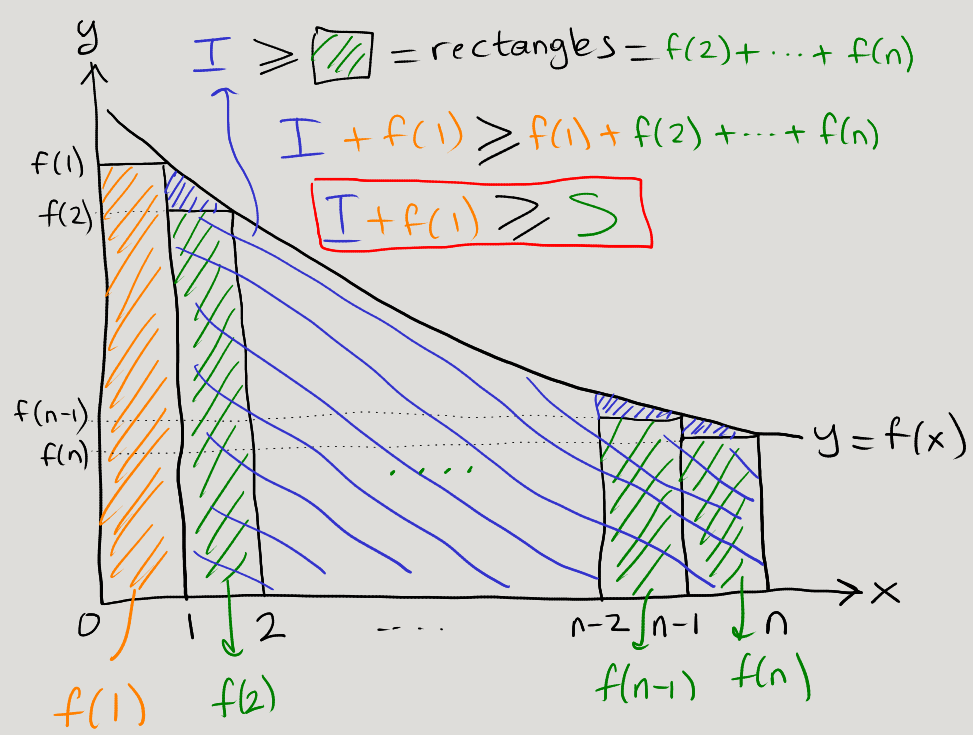 y
I ≥ = rectangles = f(2) + ... + f(n)
I + f(1) ≥ f(1) + f(2) + ... + f(n)
I + f(1) ≥ S
f(1)
f(2)
f(n-1)
f(n)
.....
y = f(x)
0 1 2 .... n-2 n-1 n x
f(1) f(2) f(n-1) f(n)